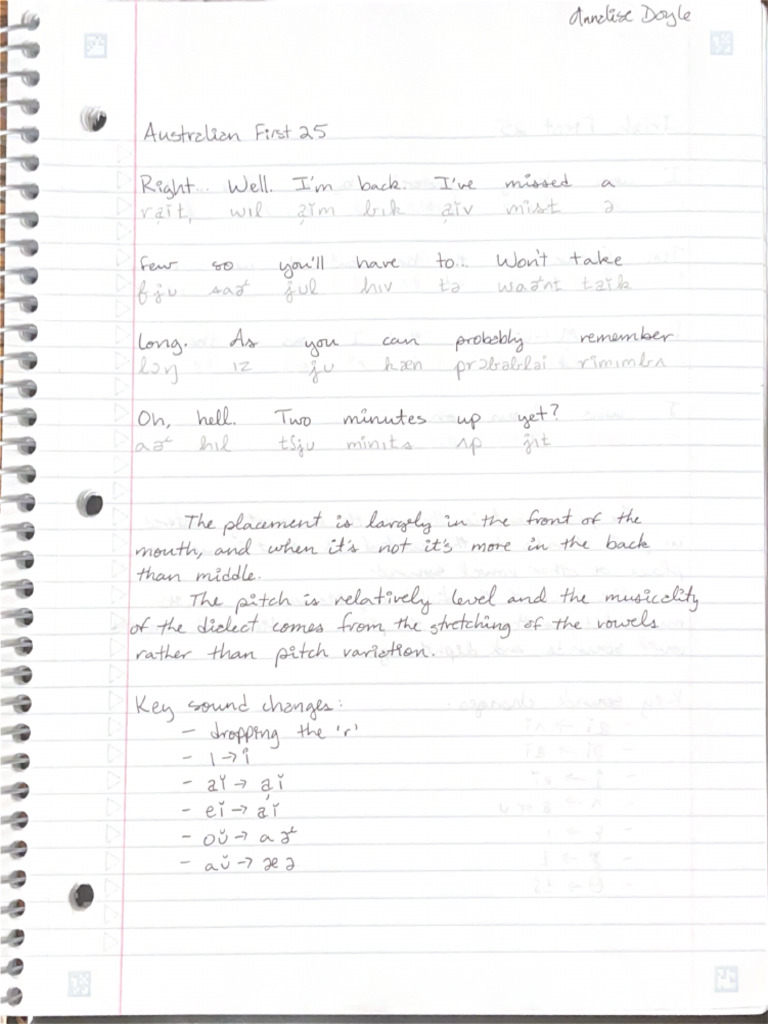 Annelise Doyle
Australian First 25
Right... Well. I'm back. I've missed a
rạĭt, wıl ạĭm bık ạĭv mist ə
few so you'll have to... Won't take
fju saə˞ jul hıv tə waə˞nt taĭk
long. As you can probably remember
lɔŋ ız ju kæn prɔbəblai rımımbʌ
Oh, hell. Two minutes up yet?
aə˞ hıl tʃju minıts ʌp jıt
The placement is largely in the front of the
mouth, and when it's not it's more in the back
than middle.
The pitch is relatively level and the musicality
of the dialect comes from the stretching of the vowels
rather than pitch variation.
Key sound changes:
- dropping the 'r'
- ı → i̊
- aĭ → ạĭ
- eĭ → aĭ
- oŭ → aə˞
- aŭ → æə